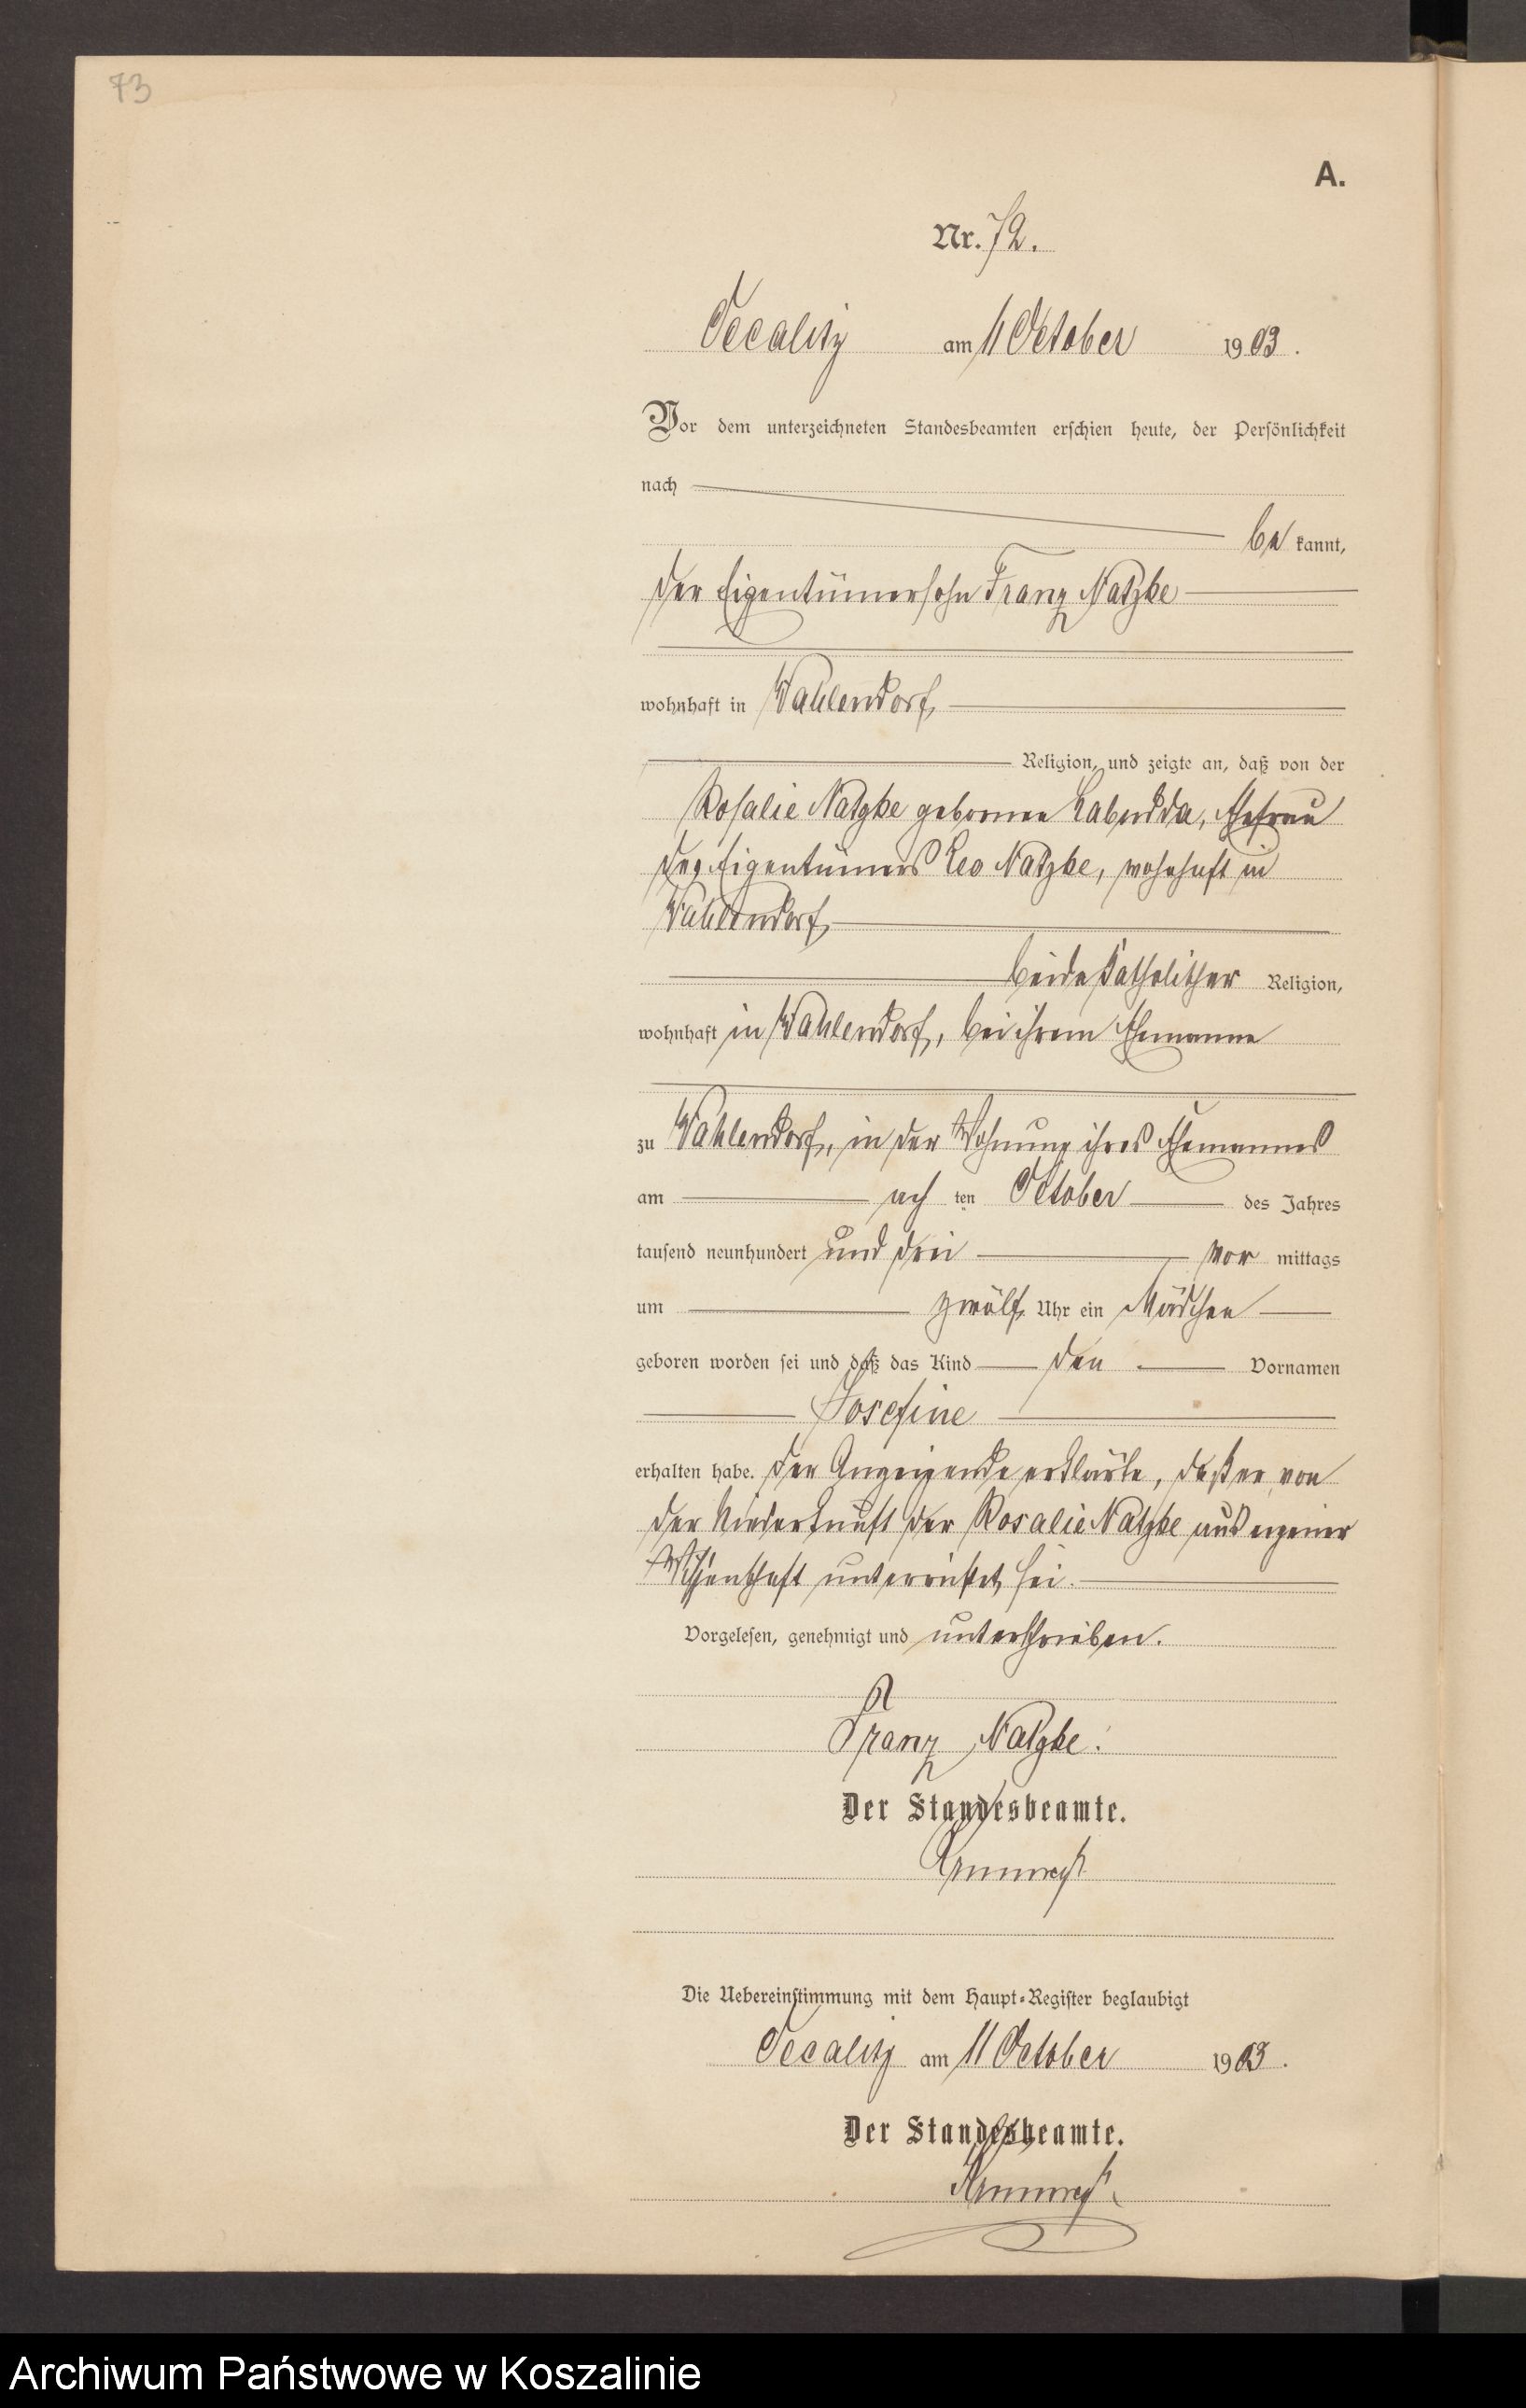 73
A.
Nr. 72.
am 11 October 1903.
Vor dem unterzeichneten Standesbeamten erschien heute, der Persönlichkeit
nach
be kannt,
der Eigentümersohn Franz Natzke
wohnhaft in Wahlendorf,
Religion, und zeigte an, daß von der
Rosalie Natzke geborene Labudda, Ehefrau
des Eigentümers Leo Natzke, wohnhaft in
Wahlendorf,
beide katholischer Religion,
wohnhaft in Wahlendorf, bei ihrem Ehemanne
zu Wahlendorf, in der Wohnung ihres Ehemannes
am ach ten October des Jahres
tausend neunhundert und drei vor mittags
um zwölf Uhr ein Mädchen
geboren worden sei und daß das Kind den Vornamen
Josefine
erhalten habe. Der Anzeigende erklärte, daß er von
der Niederkunft der Rosalie Natzke aus eigener
Wissenschaft unterrichtet sei.
Vorgelesen, genehmigt und unterschrieben.
Franz Natzke.
Der Standesbeamte.
Die Uebereinstimmung mit dem Haupt-Register beglaubigt
am 11 October 1903.
Der Standesbeamte.
Archiwum Państwowe w Koszalinie